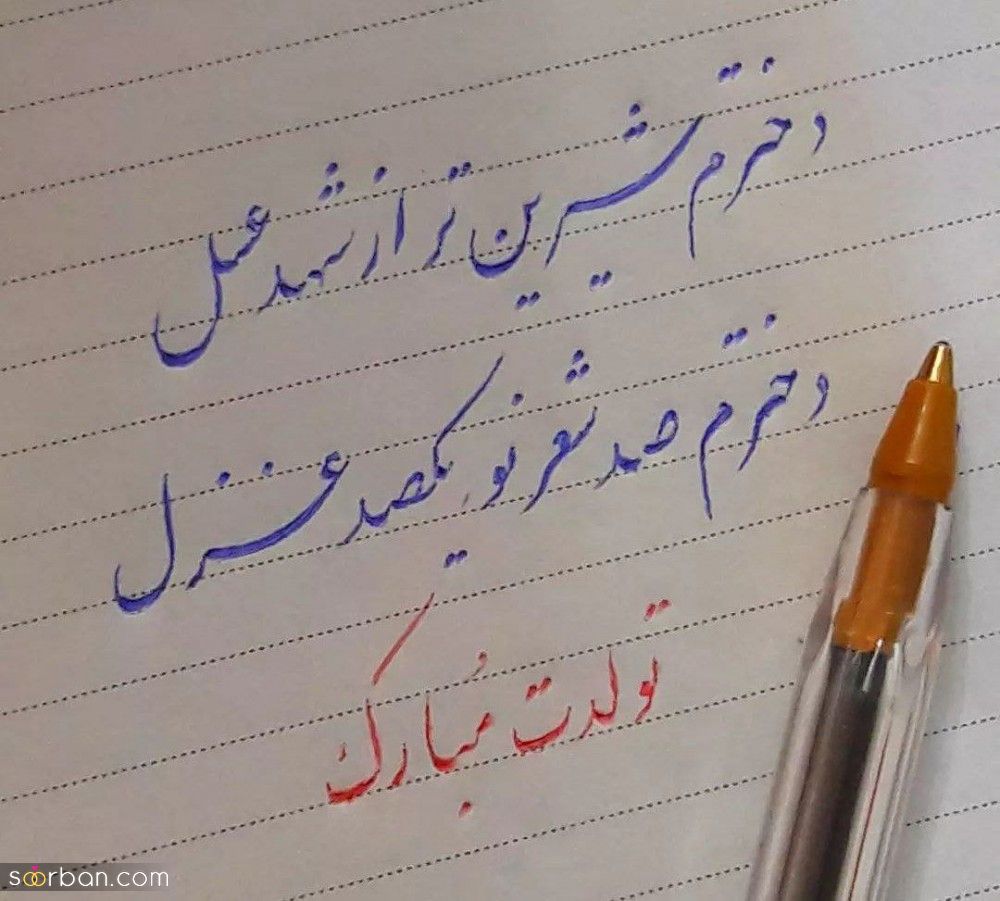 دخترم شیرین تر از شهد عسل
دخترم صد شعر نو یکصد غزل
تولدت مُبارک
soorban.com